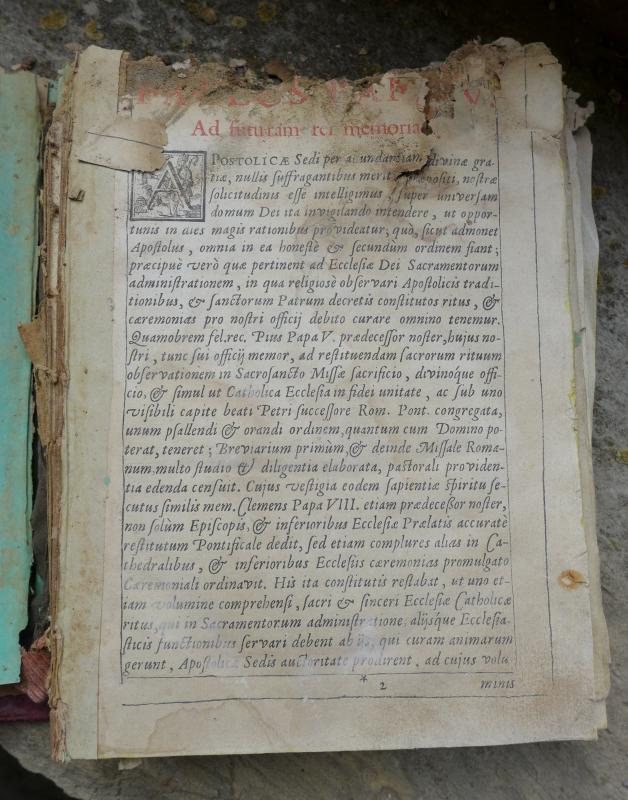 PAULUS PAPA V.
Ad futuram rei memoriam
APOSTOLICÆ Sedi per abundantiam divinæ gra-
tiæ, nullis suffragantibus meritis præpositi, nostræ
solicitudinis esse intelligimus, super universam
domum Dei ita invigilando intendere, ut oppor-
tunis in dies magis rationibus provideatur, quò, sicut admonet
Apostolus, omnia in ea honestè & secundùm ordinem fiant;
præcipuè verò quæ pertinent ad Ecclesiæ Dei Sacramentorum
administrationem, in qua religiosè observari Apostolicis tradi-
tionibus, & sanctorum Patrum decretis constitutos ritus, &
cæremonias pro nostri officij debito curare omnino tenemur.
Quamobrem fel. rec. Pius Papa V. prædecessor noster, hujus no-
stri, tunc sui officij memor, ad restituendam sacrorum rituum
observationem in Sacrosancto Missæ sacrificio, divinoque offi-
cio, & simul ut Catholica Ecclesia in fidei unitate, ac sub uno
visibili capite beati Petri successore Rom. Pont. congregata,
unum psallendi & orandi ordinem, quantum cum Domino po-
terat, teneret; Breviarium primùm, & deinde Missale Roma-
num multo studio & diligentia elaborata, pastorali providen-
tia edenda censuit. Cujus vestigia eodem sapientiæ spiritu se-
cutus similis mem. Clemens Papa VIII. etiam prædecessor noster,
non solùm Episcopis, & inferioribus Ecclesiæ Prælatis accuratè
restitutum Pontificale dedit, sed etiam complures alias in Ca-
thedralibus, & inferioribus Ecclesiis cæremonias promulgato
Cæremoniali ordinavit. His ita constitutis restabat, ut uno et-
iam volumine comprehensi, sacri & sinceri Ecclesiæ Catholicæ
ritus, qui in Sacramentorum administratione, alijsque Ecclesia-
sticis functionibus servari debent ab ijs, qui curam animarum
gerunt, Apostolicæ Sedis auctoritate prodirent, ad cujus volu
* 2 minis